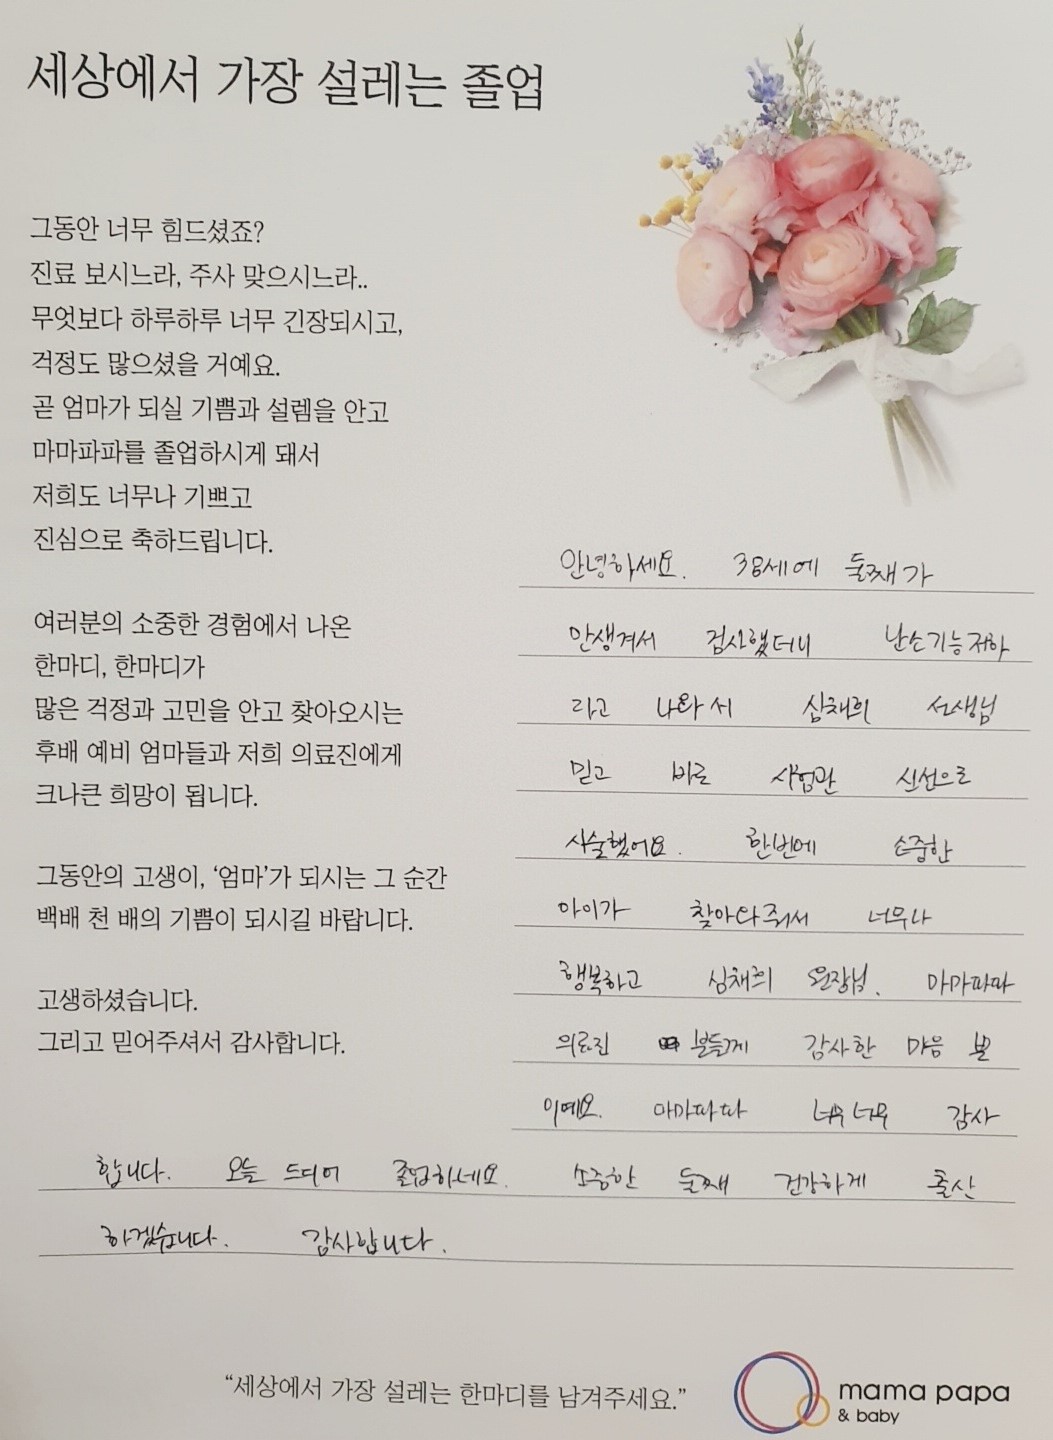 세상에서 가장 설레는 졸업
그동안 너무 힘드셨죠?
진료 보시느라, 주사 맞으시느라..
무엇보다 하루하루 너무 긴장되시고,
걱정도 많으셨을 거예요.
곧 엄마가 되실 기쁨과 설렘을 안고
마마파파를 졸업하시게 돼서
저희도 너무나 기쁘고
진심으로 축하드립니다.
여러분의 소중한 경험에서 나온
한마디, 한마디가
많은 걱정과 고민을 안고 찾아오시는
후배 예비 엄마들과 저희 의료진에게
크나큰 희망이 됩니다.
그동안의 고생이, ‘엄마’가 되시는 그 순간
백배 천 배의 기쁨이 되시길 바랍니다.
고생하셨습니다.
그리고 믿어주셔서 감사합니다.
안녕하세요. 38세에 둘째가
안생겨서 검사했더니 난소기능저하
라고 나와서 심채희 선생님
믿고 바로 시험관 신선으로
시술했어요. 한번에 소중한
아이가 찾아와줘서 너무나
행복하고 심채희 원장님. 마마파파
의료진 분들께 감사한 마음 뿐
이예요. 마마파파 너무너무 감사
합니다. 오늘 드디어 졸업하네요. 소중한 둘째 건강하게 출산
하겠습니다. 감사합니다.
“세상에서 가장 설레는 한마디를 남겨주세요.”
mama papa
& baby